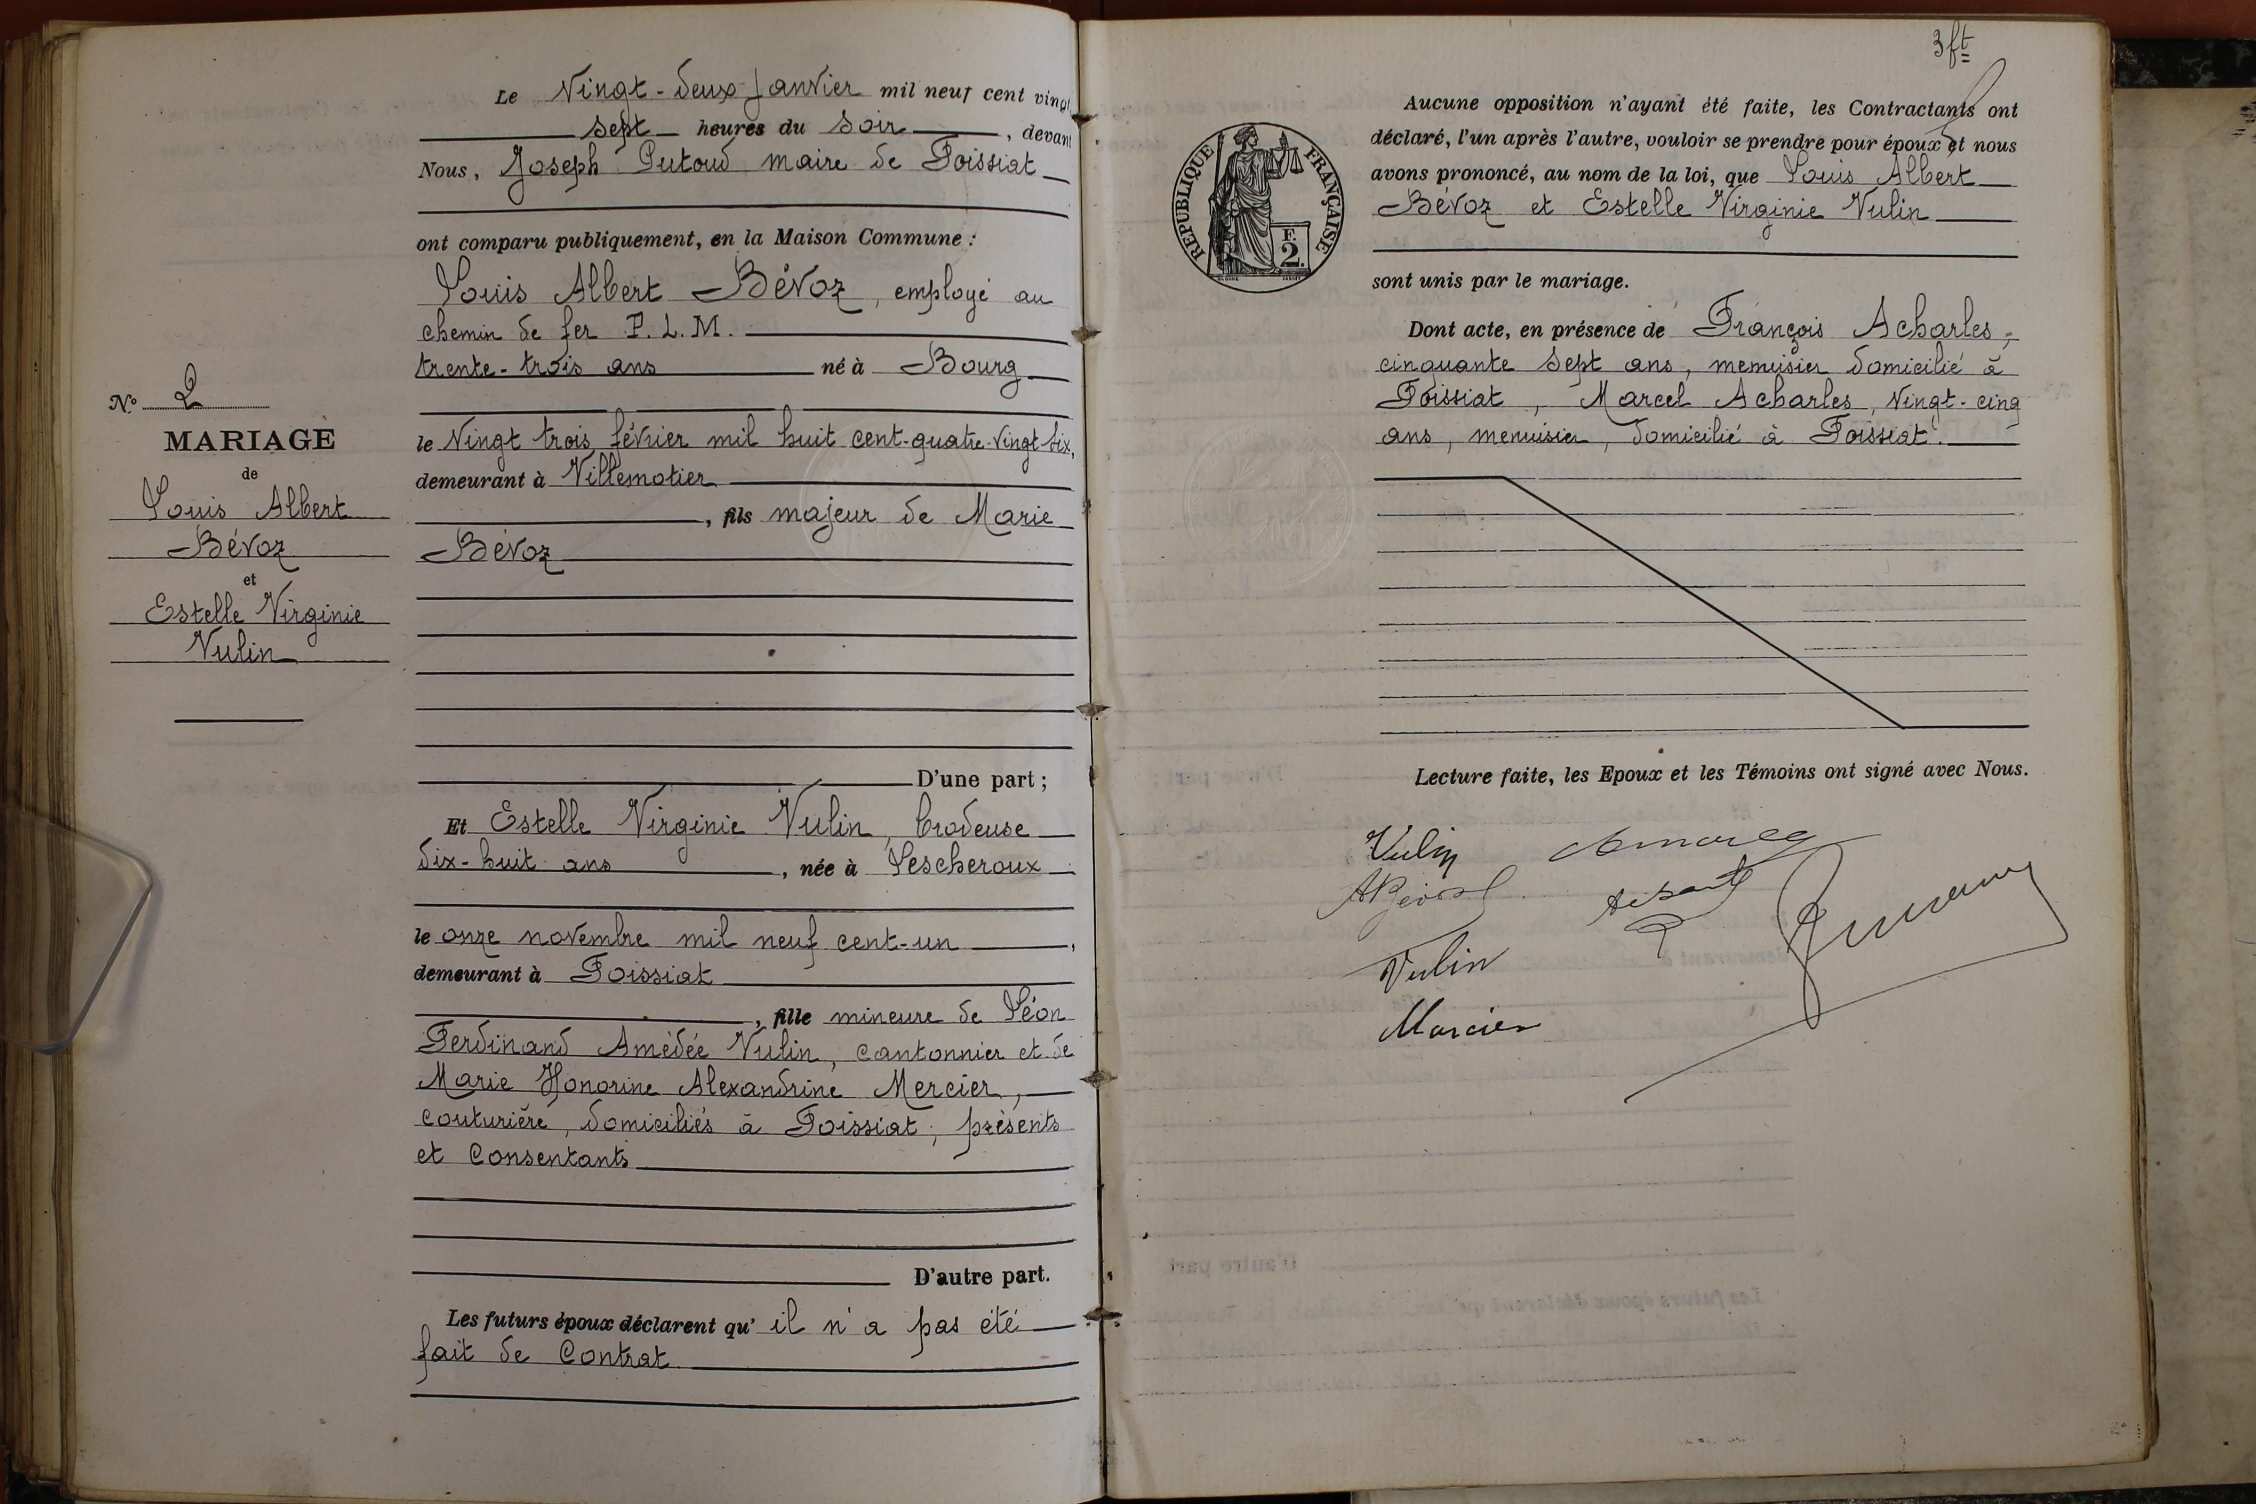 Le Vingt-deux Janvier mil neuf cent vingt
sept heures du soir, devant
Nous, Joseph Putoud maire de Foissiat
ont comparu publiquement, en la Maison Commune :
Louis Albert Bévoz, employé au
chemin de fer P. L. M.
trente-trois ans né à Bourg
le Vingt trois février mil huit cent-quatre-vingt six,
demeurant à Villemotier
, fils majeur de Marie
Bévoz
D'une part ;
Et Estelle Virginie Vulin, brodeuse
dix-huit ans, née à Lescheroux
le onze novembre mil neuf cent-un,
demeurant à Foissiat
, fille mineure de Léon
Ferdinand Amédée Vulin, cantonnier et de
Marie Honorine Alexandrine Mercier,
couturière, domiciliés à Foissiat, présents
et Consentants
D'autre part.
Les futurs époux déclarent qu' il n'a pas été
fait de Contrat
N.º 2
MARIAGE
de
Louis Albert
Bévoz
et
Estelle Virginie
Vulin
3 ft
RÉPUBLIQUE FRANÇAISE
F.
2.
Aucune opposition n'ayant été faite, les Contractants ont
déclaré, l'un après l'autre, vouloir se prendre pour époux et nous
avons prononcé, au nom de la loi, que Louis Albert
Bévoz et Estelle Virginie Vulin
sont unis par le mariage.
Dont acte, en présence de François Acharles,
cinquante sept ans, menuisier domicilié à
Foissiat, Marcel Acharles, Vingt-cinq
ans, menuisier, domicilié à Foissiat.
Lecture faite, les Epoux et les Témoins ont signé avec Nous.
Vulin
ABévoz
Vulin
Marcier